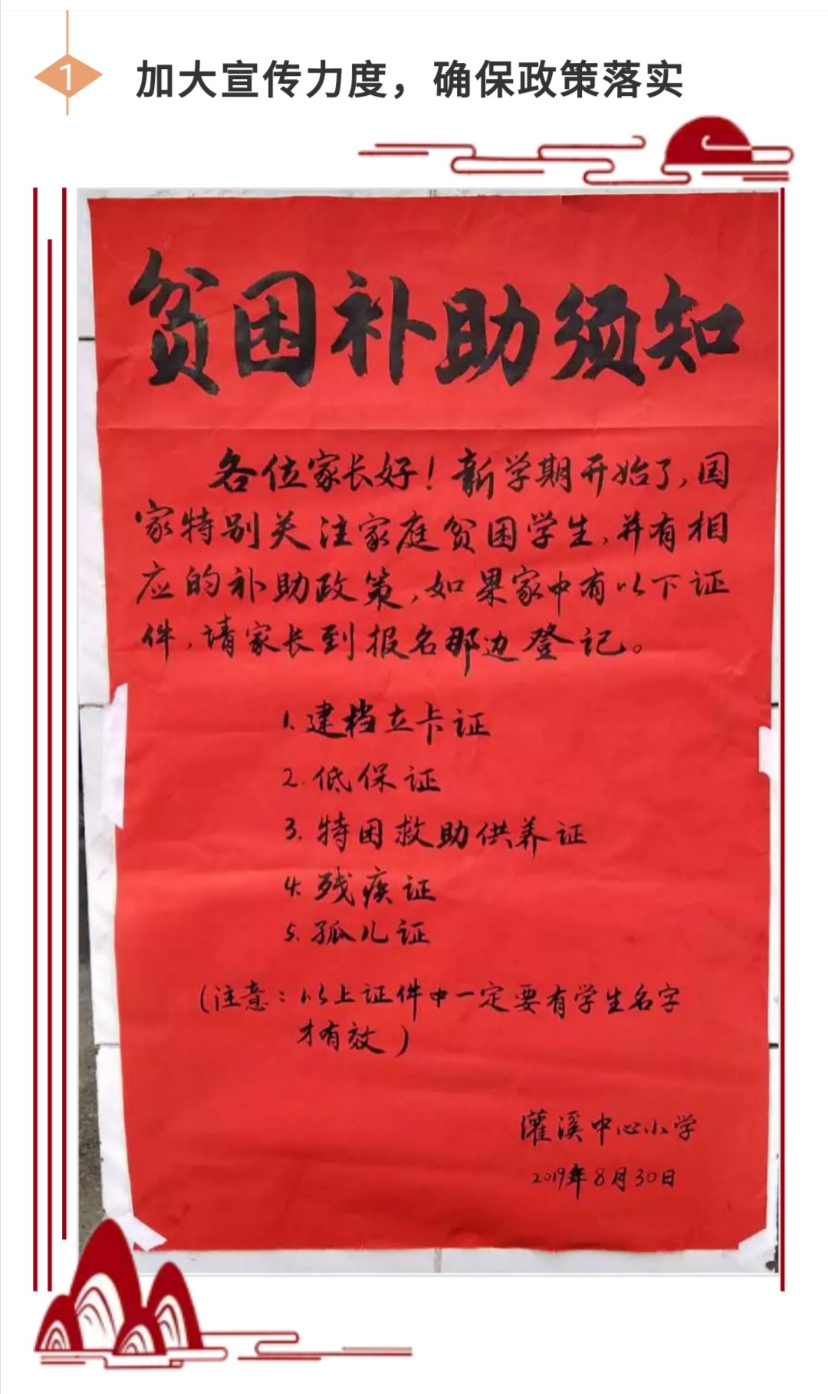 1
加大宣传力度，确保政策落实
贫困补助须知
各位家长好！新学期开始了,国
家特别关注家庭贫困学生,并有相
应的补助政策,如果家中有以下证
件,请家长到报名那边登记。
1.建档立卡证
2.低保证
3.特困救助供养证
4.残疾证
5.孤儿证
(注意：以上证件中一定要有学生名字
才有效)
灌溪中心小学
2019年8月30日